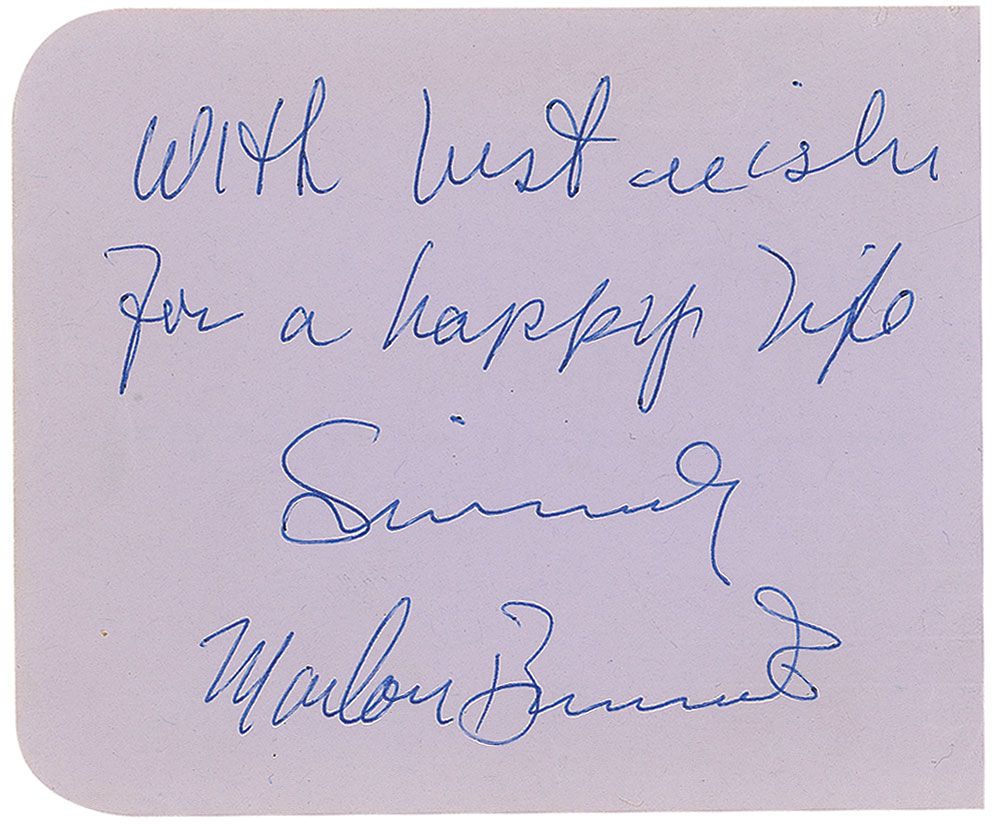 With best wishes
For a happy life
Sincerely
Marlon Brando